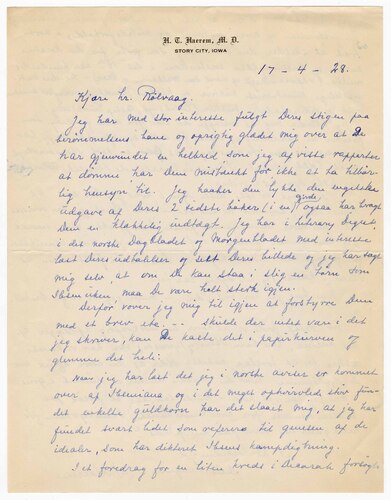 H. T. Haerem, M. D.
STORY CITY, IOWA
17 - 4 - 28.
Kjære hr. Rölvaag.
Jeg har med stor interesse fulgt Deres stigen paa
berömmelsens bane og oprigtig glædet mig over at De
har gjenvundet en helbred som jeg af visse rapporter
at dömme har Dem mistænkt for ikke at ta tilbör-
lig hensyn til. Jeg haaber den lykke den engelske
udgave af Deres 2 sidste böker (i en) gjorde, ogsaa har bragt
Dem en klækkelig indtægt. Jeg har i Literary Digest,
i det norske Dagbladet og Morgenbladet med interesse
læst Deres udtalelser og seet Deres billede og jeg har sagt
mig selv, at om De kan staa i slig en
maa De være helt stærk igjen.
Derfor vover jeg mig til igjen at forstyrre Dem
med et brev Skulde der intet være i det
jeg skriver, kan De kaste det i papirkurven og
glemme det hele.
Naar jeg har læst det jeg i norske aviser er kommet
over af Ibseniana og i det meget ophvirvlede stöv fun-
det enkelte guldkorn har det slaaet mig, at jeg har
fundet svært lidet som refererer til genesen af de
idealer, som har dikteret Ibsens kampdigtning.
I et foredrag for en liten kreds i Decorah forsögte